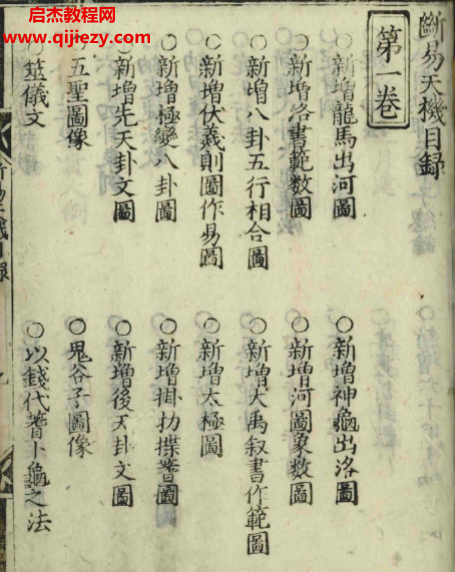 启杰教程网
www.qijiezy.com
斷易天機目録
第一卷
○新增龍馬出河圖
○新增神龜出洛圖
○新增洛書範數圖
○新增河圖象數圖
○新增八卦五行相合圖
○新增大禹叙書作範圖
○新增伏羲則圖作易圖
○新增太極圖
○新增極變八卦圖
○新增掛扐揲蓍圖
○新增先天卦文圖
○新增後天卦文圖
○五聖圖像
○鬼谷子圖像
○筮儀文
○以錢代蓍卜龜之法